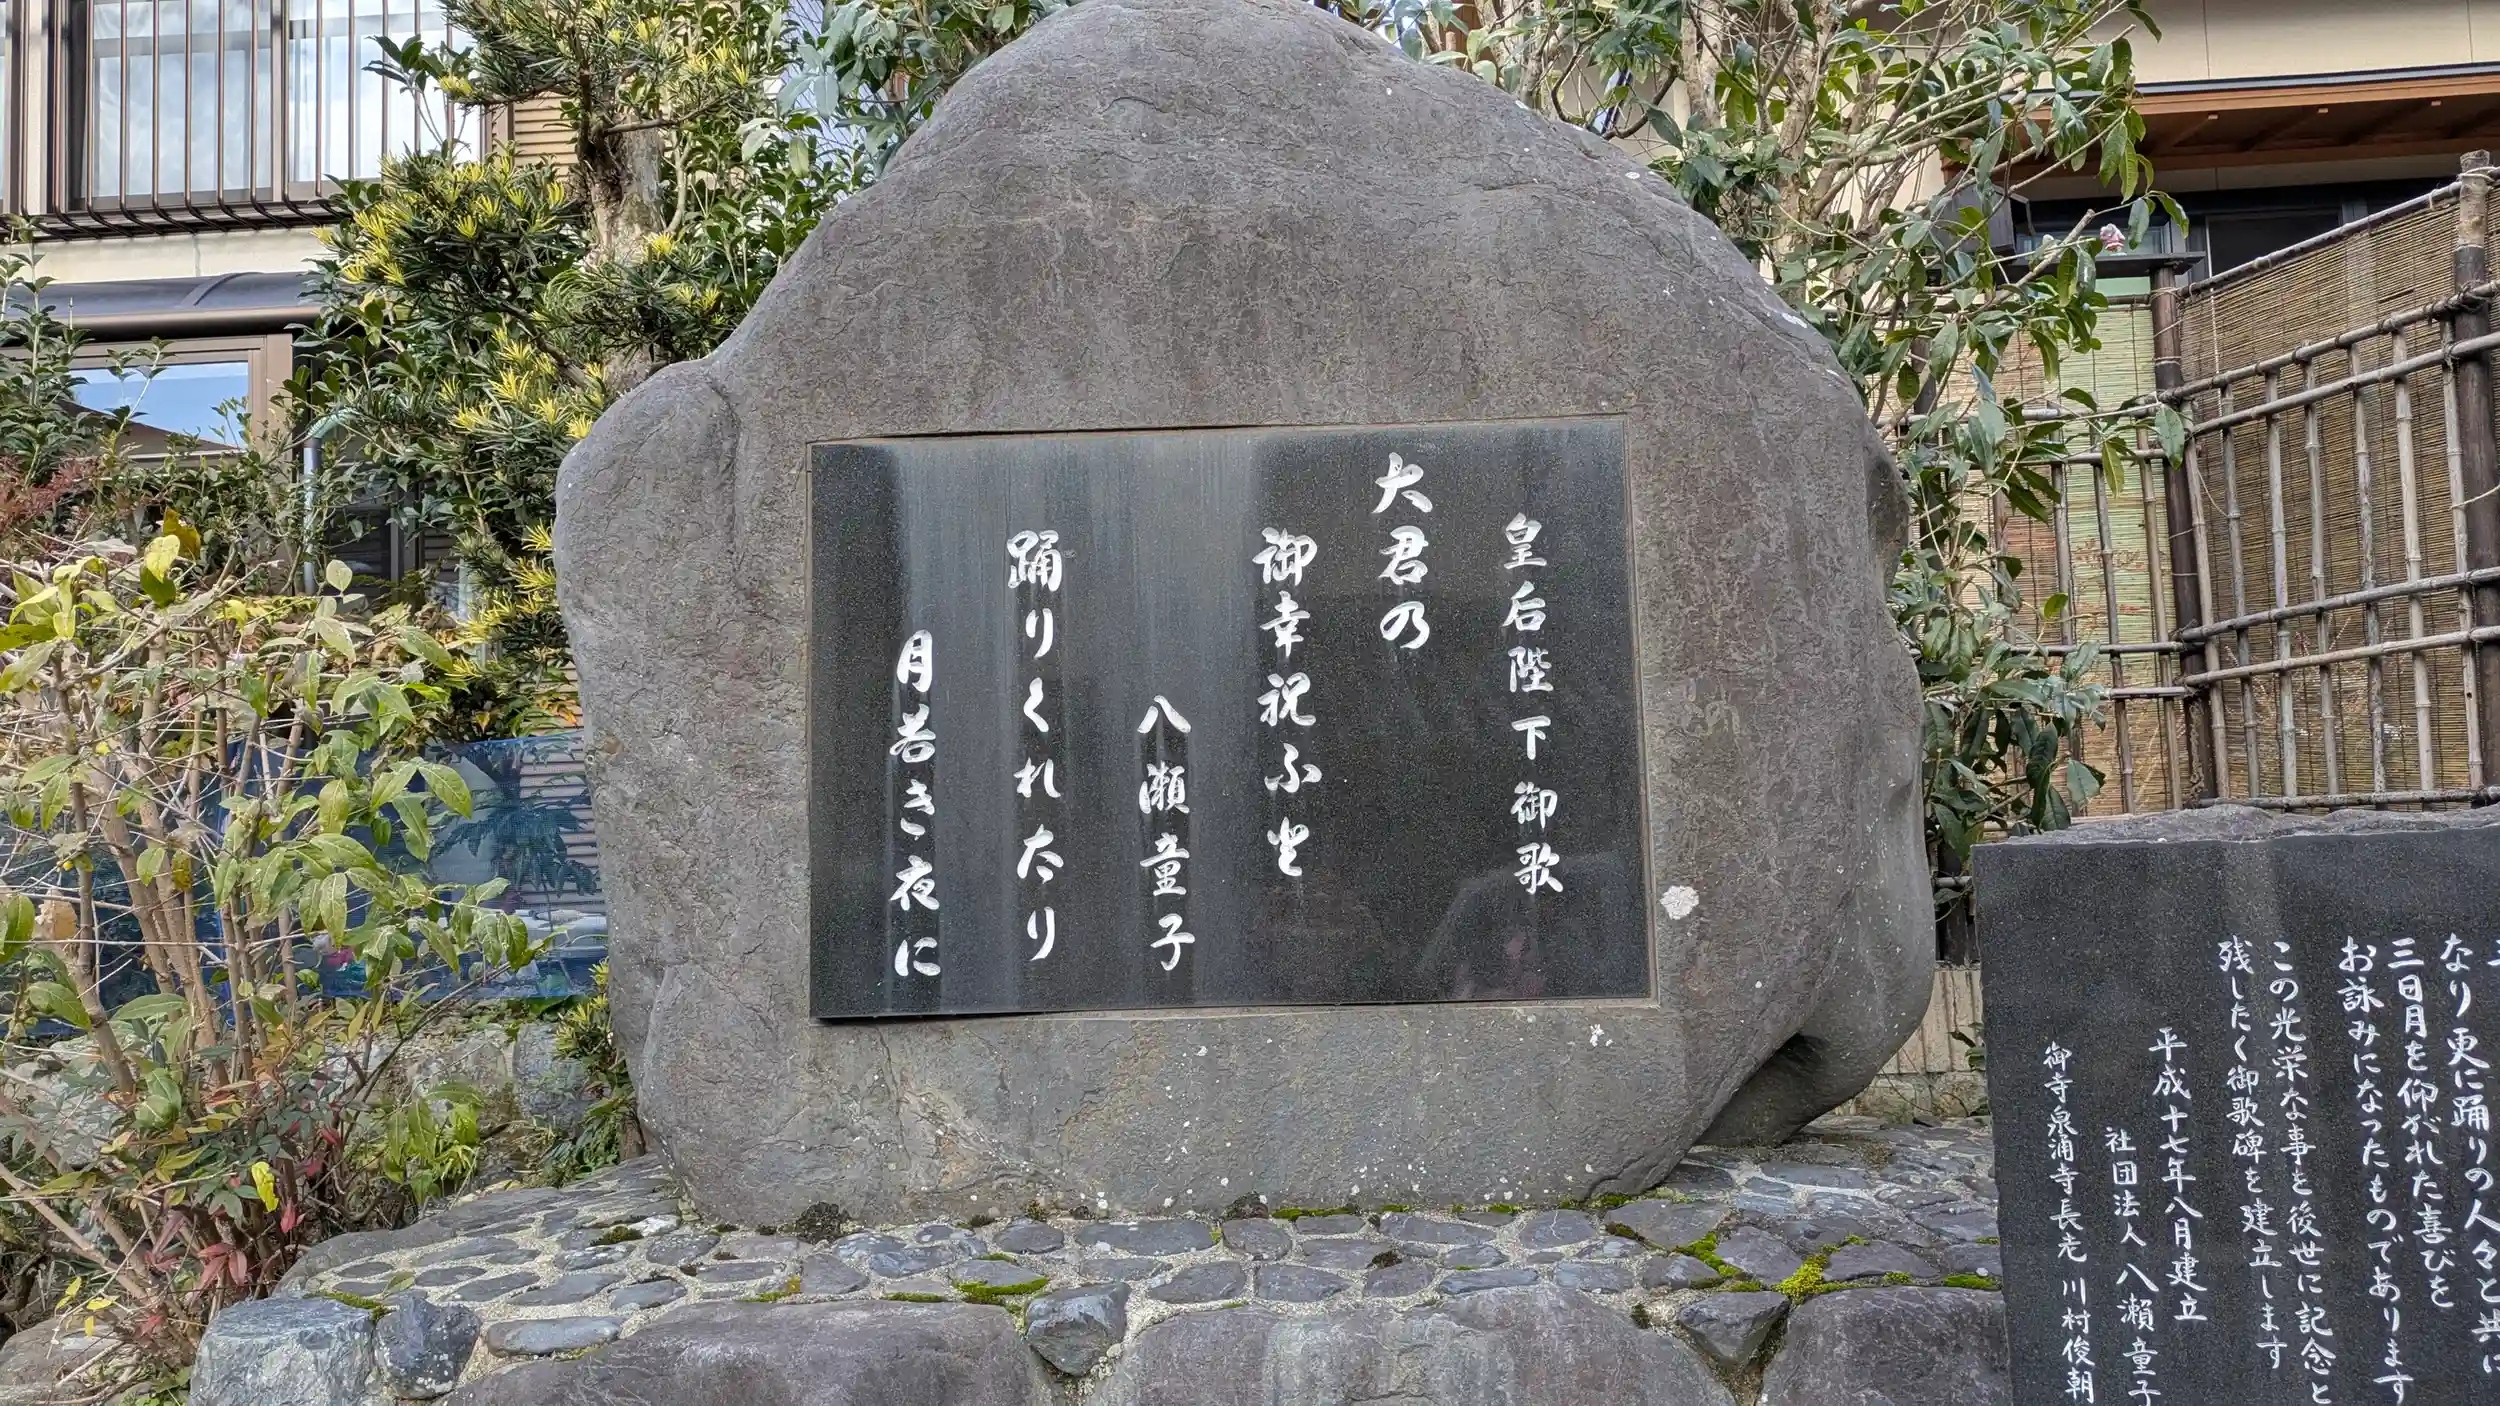 皇后陛下御歌
大君の
御幸祝ふと
八瀬童子
踊りくれたり
月若き夜に
なり更に踊りの人々と共に
三日月を仰がれた喜びを
お詠みになったものであります
この光栄な事を後世に記念と
残したく御歌碑を建立します
平成十七年八月建立
社団法人八瀬童子
御寺泉涌寺長老 川村俊朝